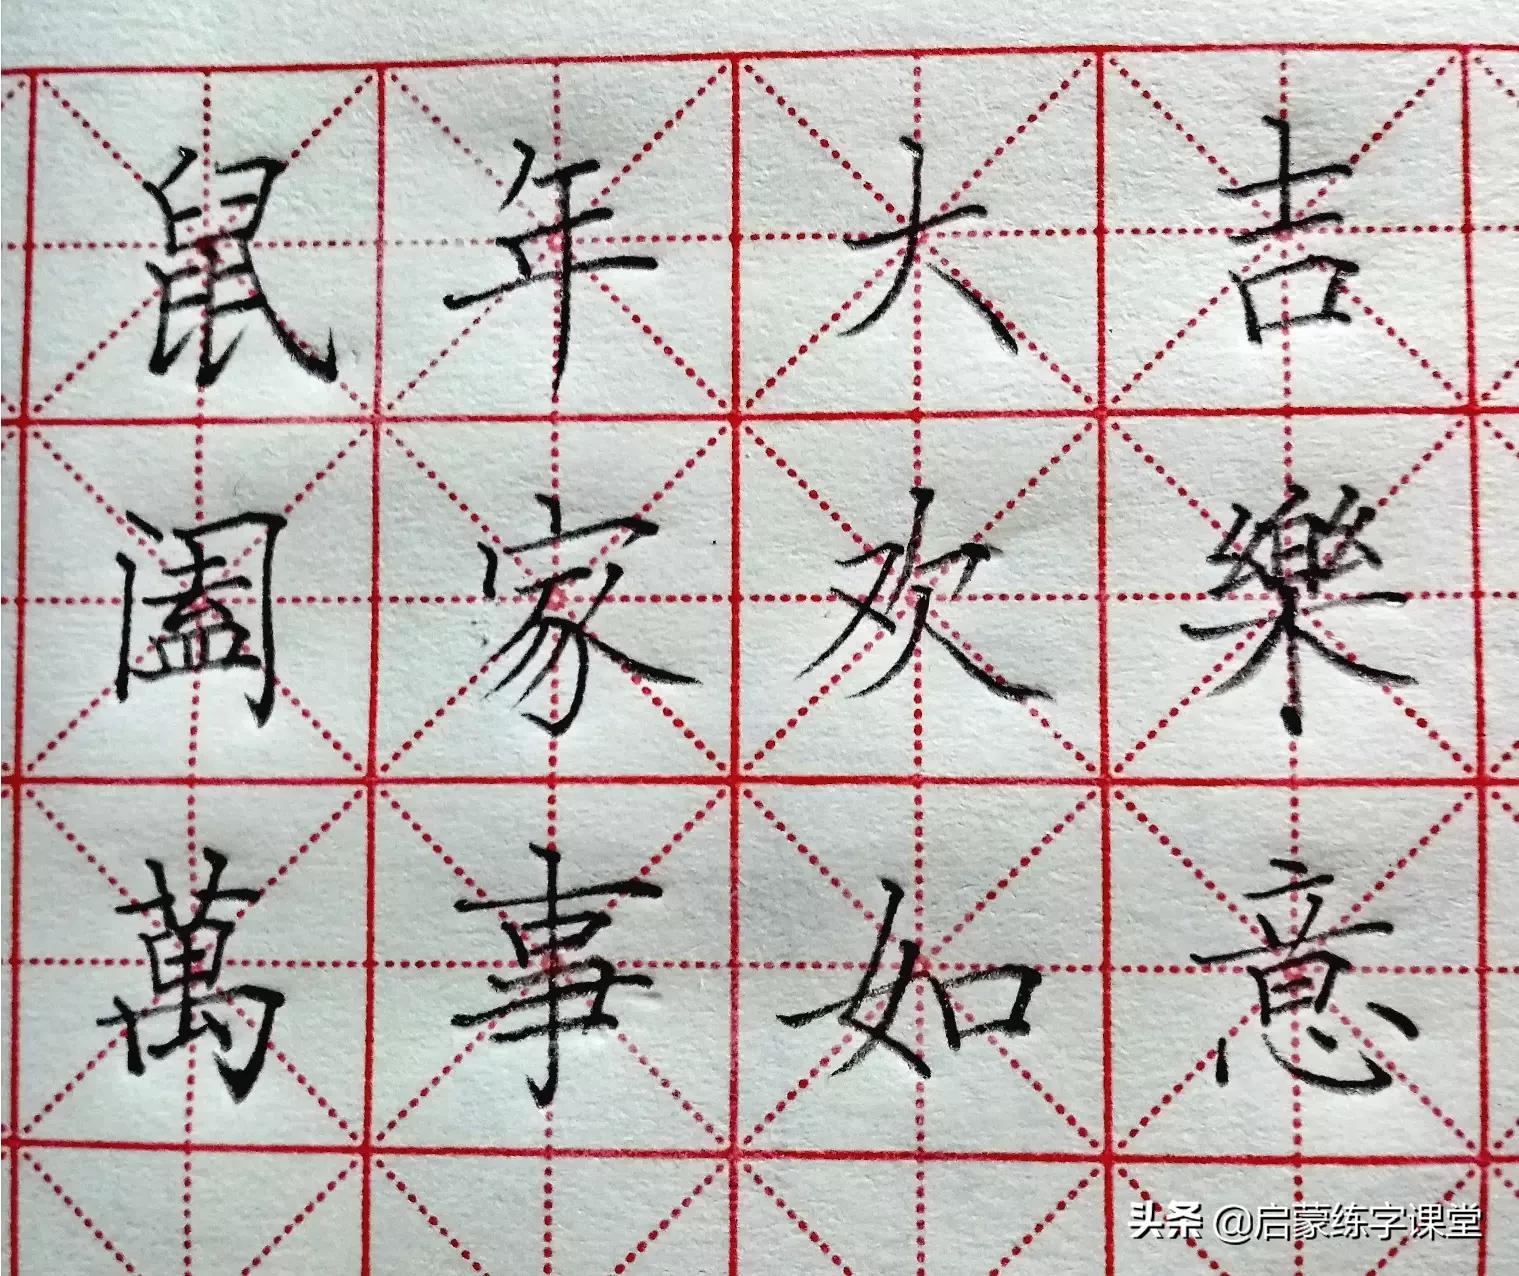 鼠年大吉
阖家欢樂
萬事如意
头条 @启蒙练字课堂